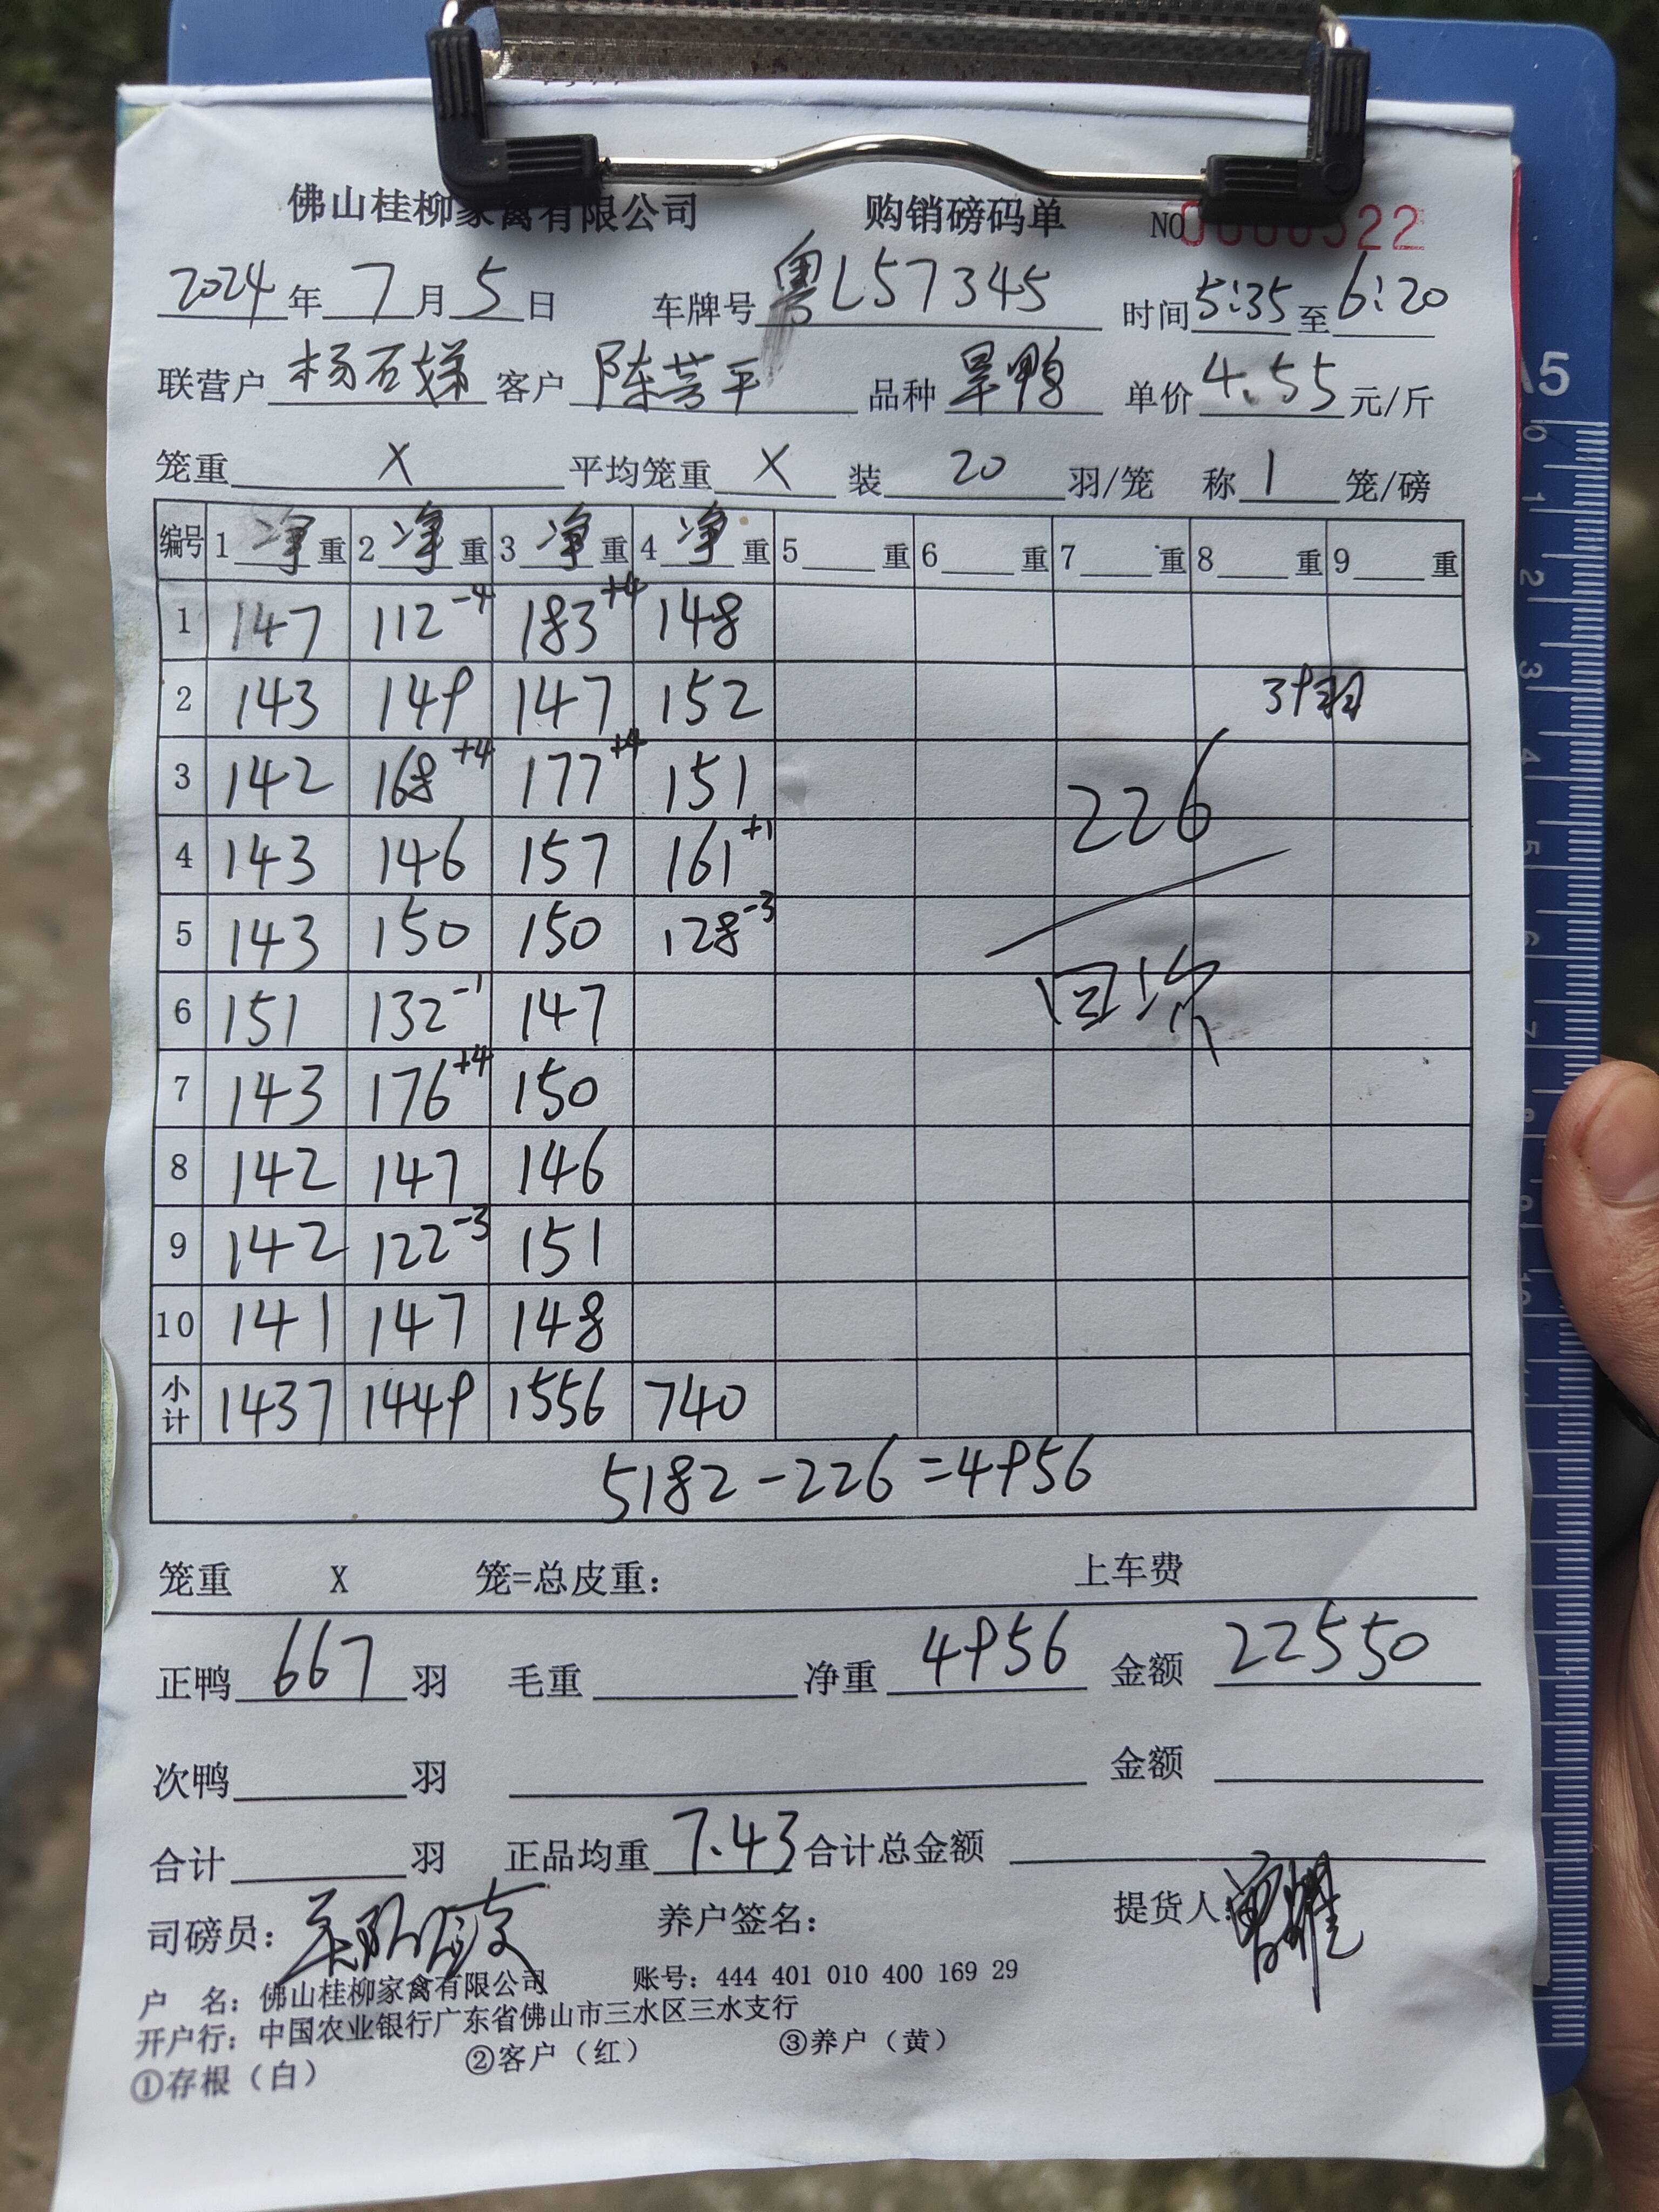 佛山桂柳家禽有限公司 购销磅码单 NO 0000522
2024年7月5日 车牌号 粤L57345 时间 5:35 至 6:20
联营户 杨石娣 客户 陈芳平 品种 旱鸭 单价 4.55 元/斤
笼重 X 平均笼重 X 装 20 羽/笼 称 1 笼/磅
编号 1 净 重 2 净 重 3 净 重 4 净 重 5 重 6 重 7 重 8 重 9 重
1 147 112 -4 183 +4 148
2 143 149 147 152 39羽
3 142 168 +4 177 +4 151 226
4 143 146 157 161 +1
5 143 150 150 128 -3
6 151 132 -1 147 回坎
7 143 176 +4 150
8 142 147 146
9 142 122 -3 151
10 141 147 148
小计 1437 1449 1556 740
5182-226=4956
笼重 X 笼=总皮重: 上车费
正鸭 667 羽 毛重 净重 4956 金额 22550
次鸭 羽 金额
合计 羽 正品均重 7.43 合计总金额
司磅员: 养户签名: 提货人:
户 名: 佛山桂柳家禽有限公司 账号: 444 401 010 400 169 29
开户行: 中国农业银行广东省佛山市三水区三水支行
①存根（白） ②客户（红） ③养户（黄）
A5
0 1 2 3 4 5 6 7 8 9 10